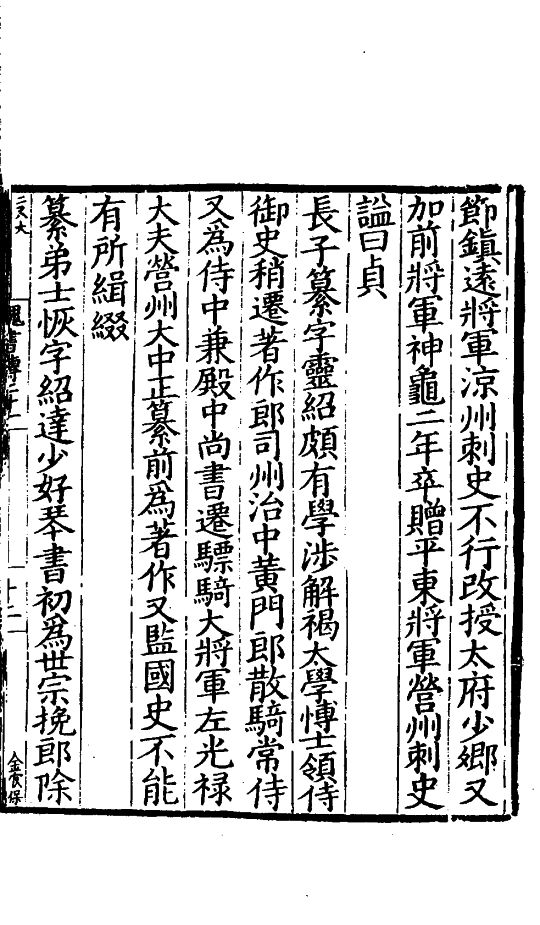 節鎮遠將軍涼州刺史不行改授太府少卿又
加前將軍神龜二年卒贈平東將軍營州刺史
謚曰貞
長子纂字靈紹頗有學涉解褐太學愽士領侍
御史稍遷著作郎司州治中黄門郎散騎常侍
又爲侍中兼殿中尚書遷驃騎大將軍左光禄
大夫營州大中正纂前爲著作又監國史不能
有所緝綴
纂弟士恢字紹達少好琴書初爲世宗挽郎除
魏書傳二十二
十二
金榮保